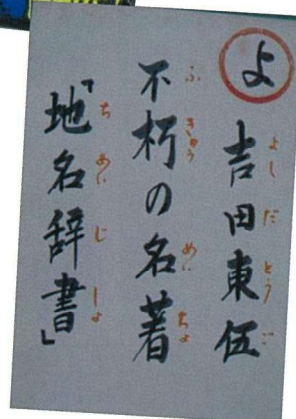 よ
吉田東伍
よしだとうご
不朽の名著
ふきゅうめいちょ
「地名辞書」
ちめいじしょ